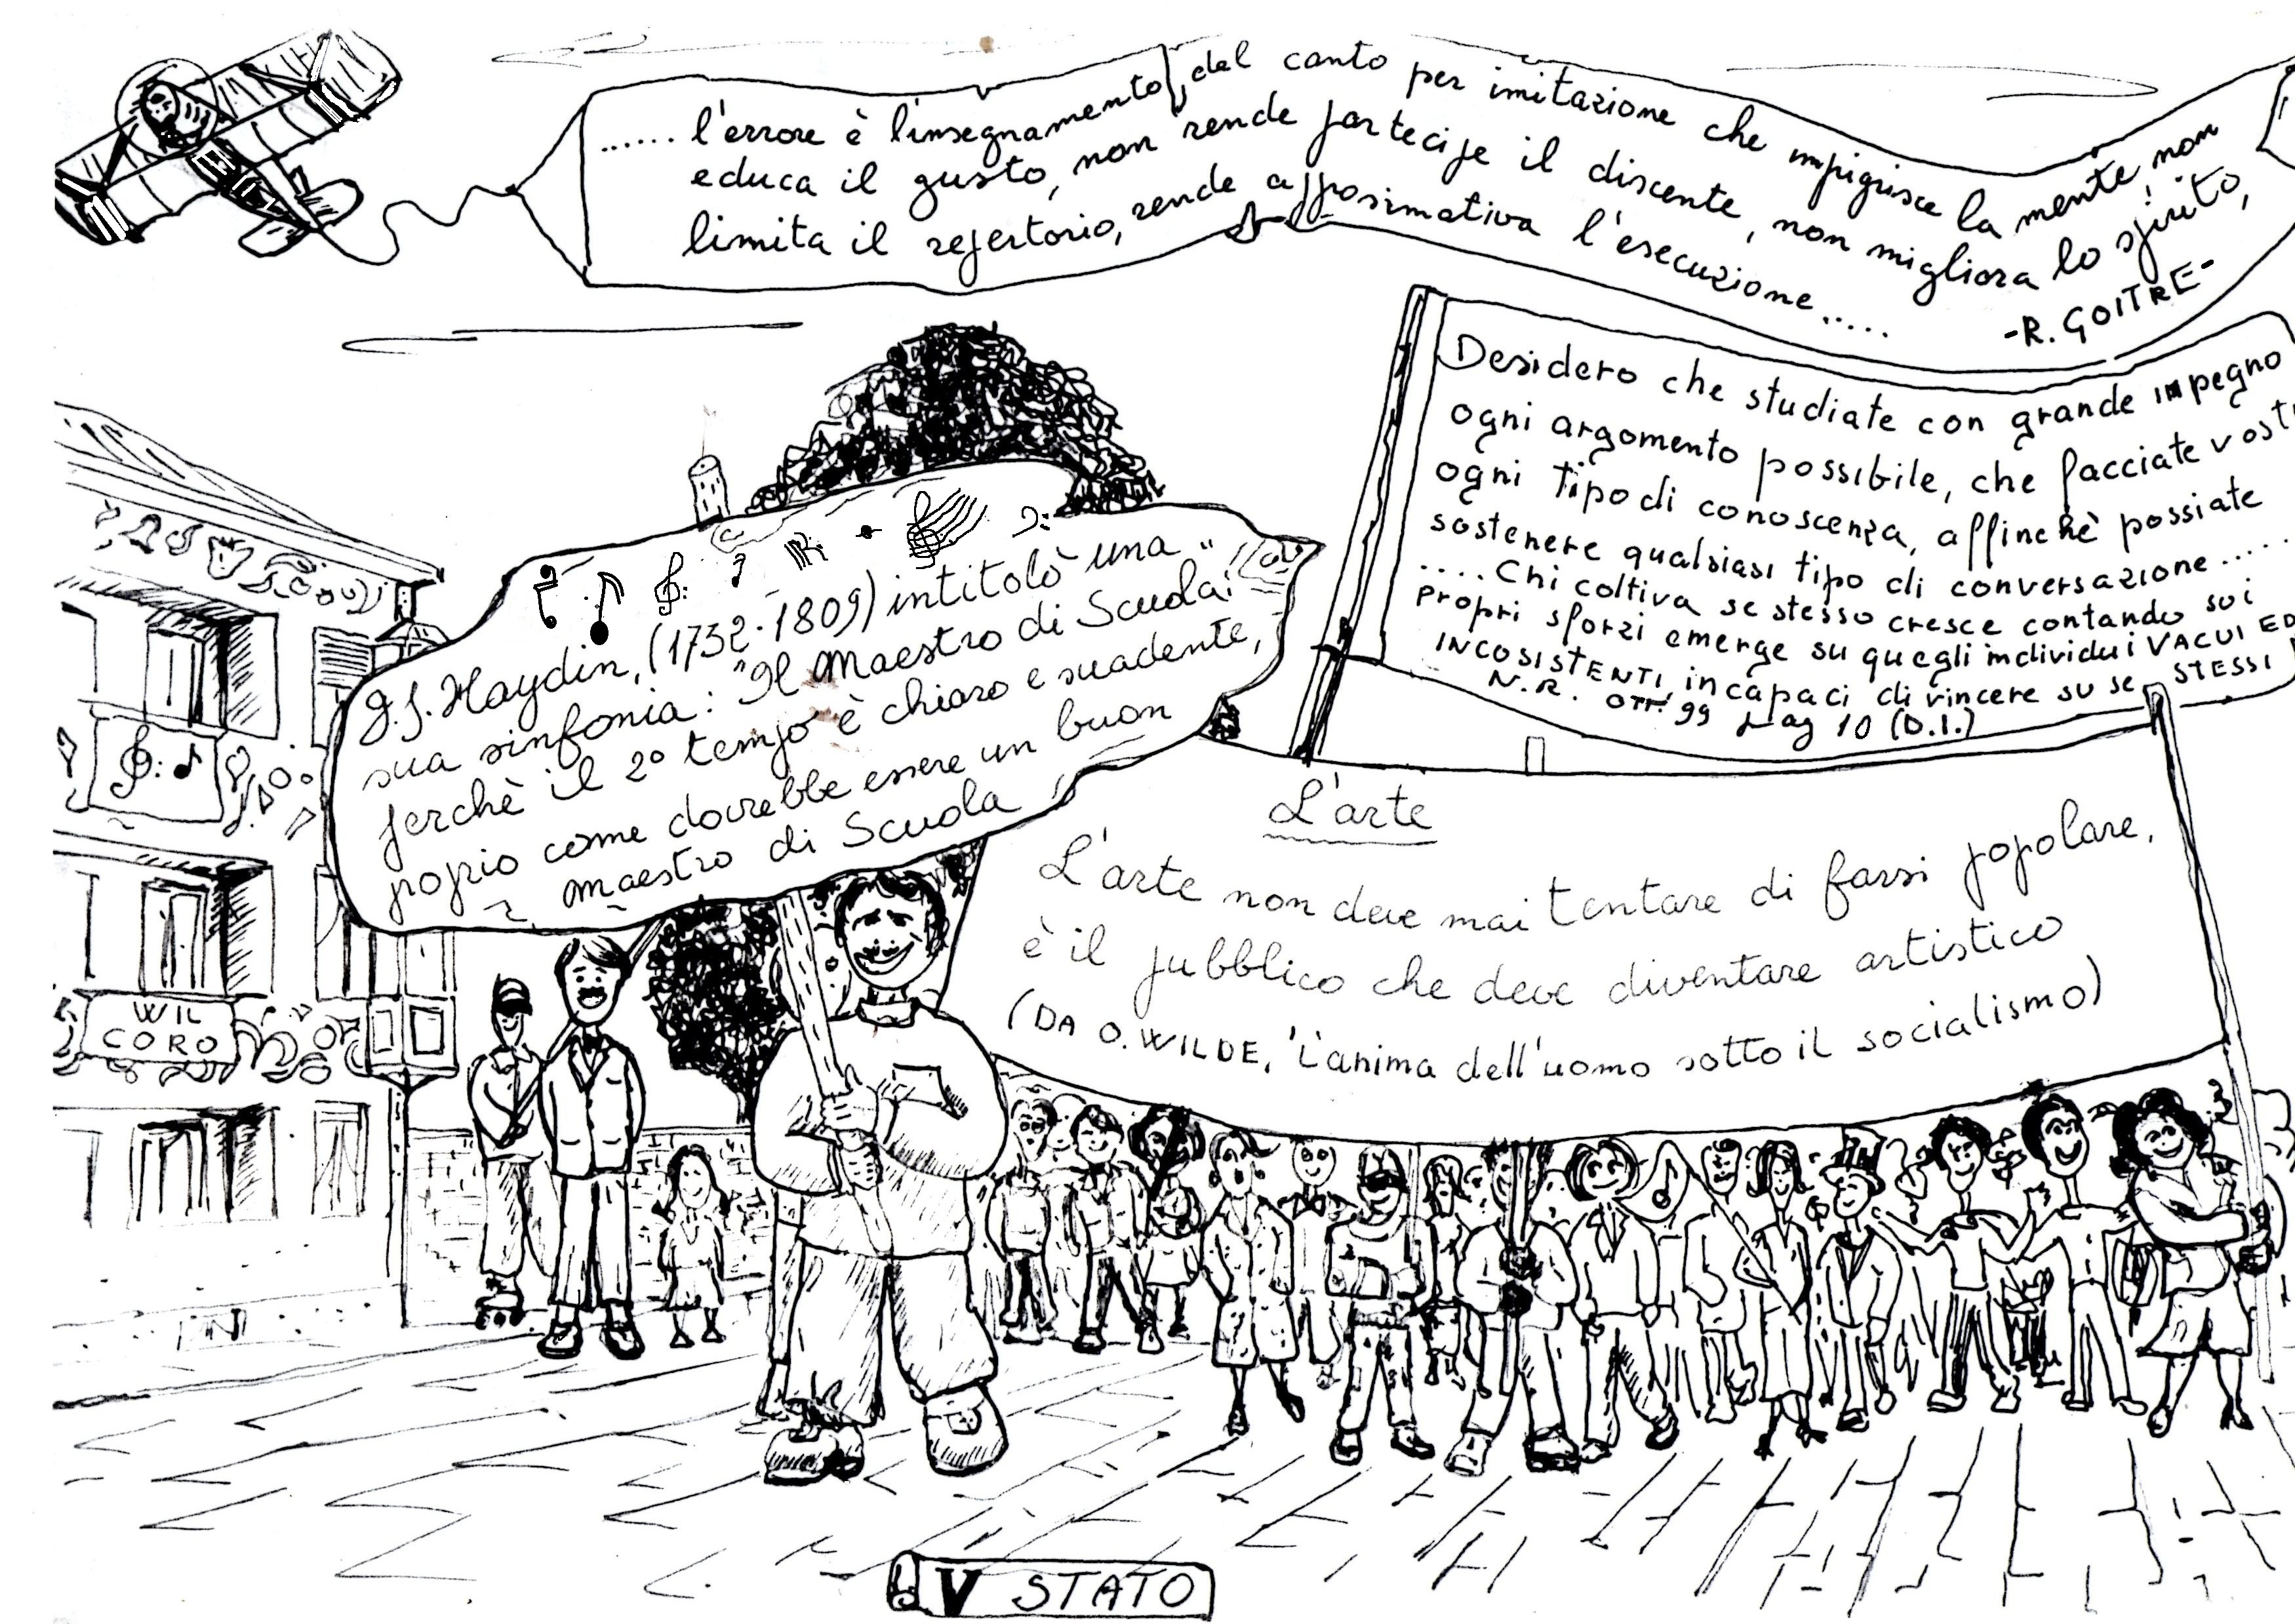 ..... l'errore è l'insegnamento, del canto per imitazione che impigrisce la mente, non
educa il gusto, non rende partecipe il discente, non migliora lo spirito,
limita il repertorio, rende approssimativa l'esecuzione.....
-R. GOITRE-
Desidero che studiate con grande impegno
ogni argomento possibile, che facciate vost
ogni tipo di conoscenza, affinchè possiate
sostenere qualsiasi tipo di conversazione.....
....Chi coltiva se stesso cresce contando sui
propri sforzi emerge su quegli individui VACUI ED
INCOSISTENTI, incapaci di vincere su se STESSI
N.R. OTT. 99 pag 10 (D.I.)
J.J. Haydin, (1732-1809) intitolò una
sua sinfonia: "Il Maestro di Scuola"
perchè il 2° tempo è chiaro e suadente,
proprio come dovrebbe essere un buon
maestro di Scuola
L'arte
L'arte non deve mai tentare di farsi popolare,
è il pubblico che deve diventare artistico
(DA O. WILDE, 'L'anima dell'uomo sotto il socialismo)
W IL
CORO
V STATO